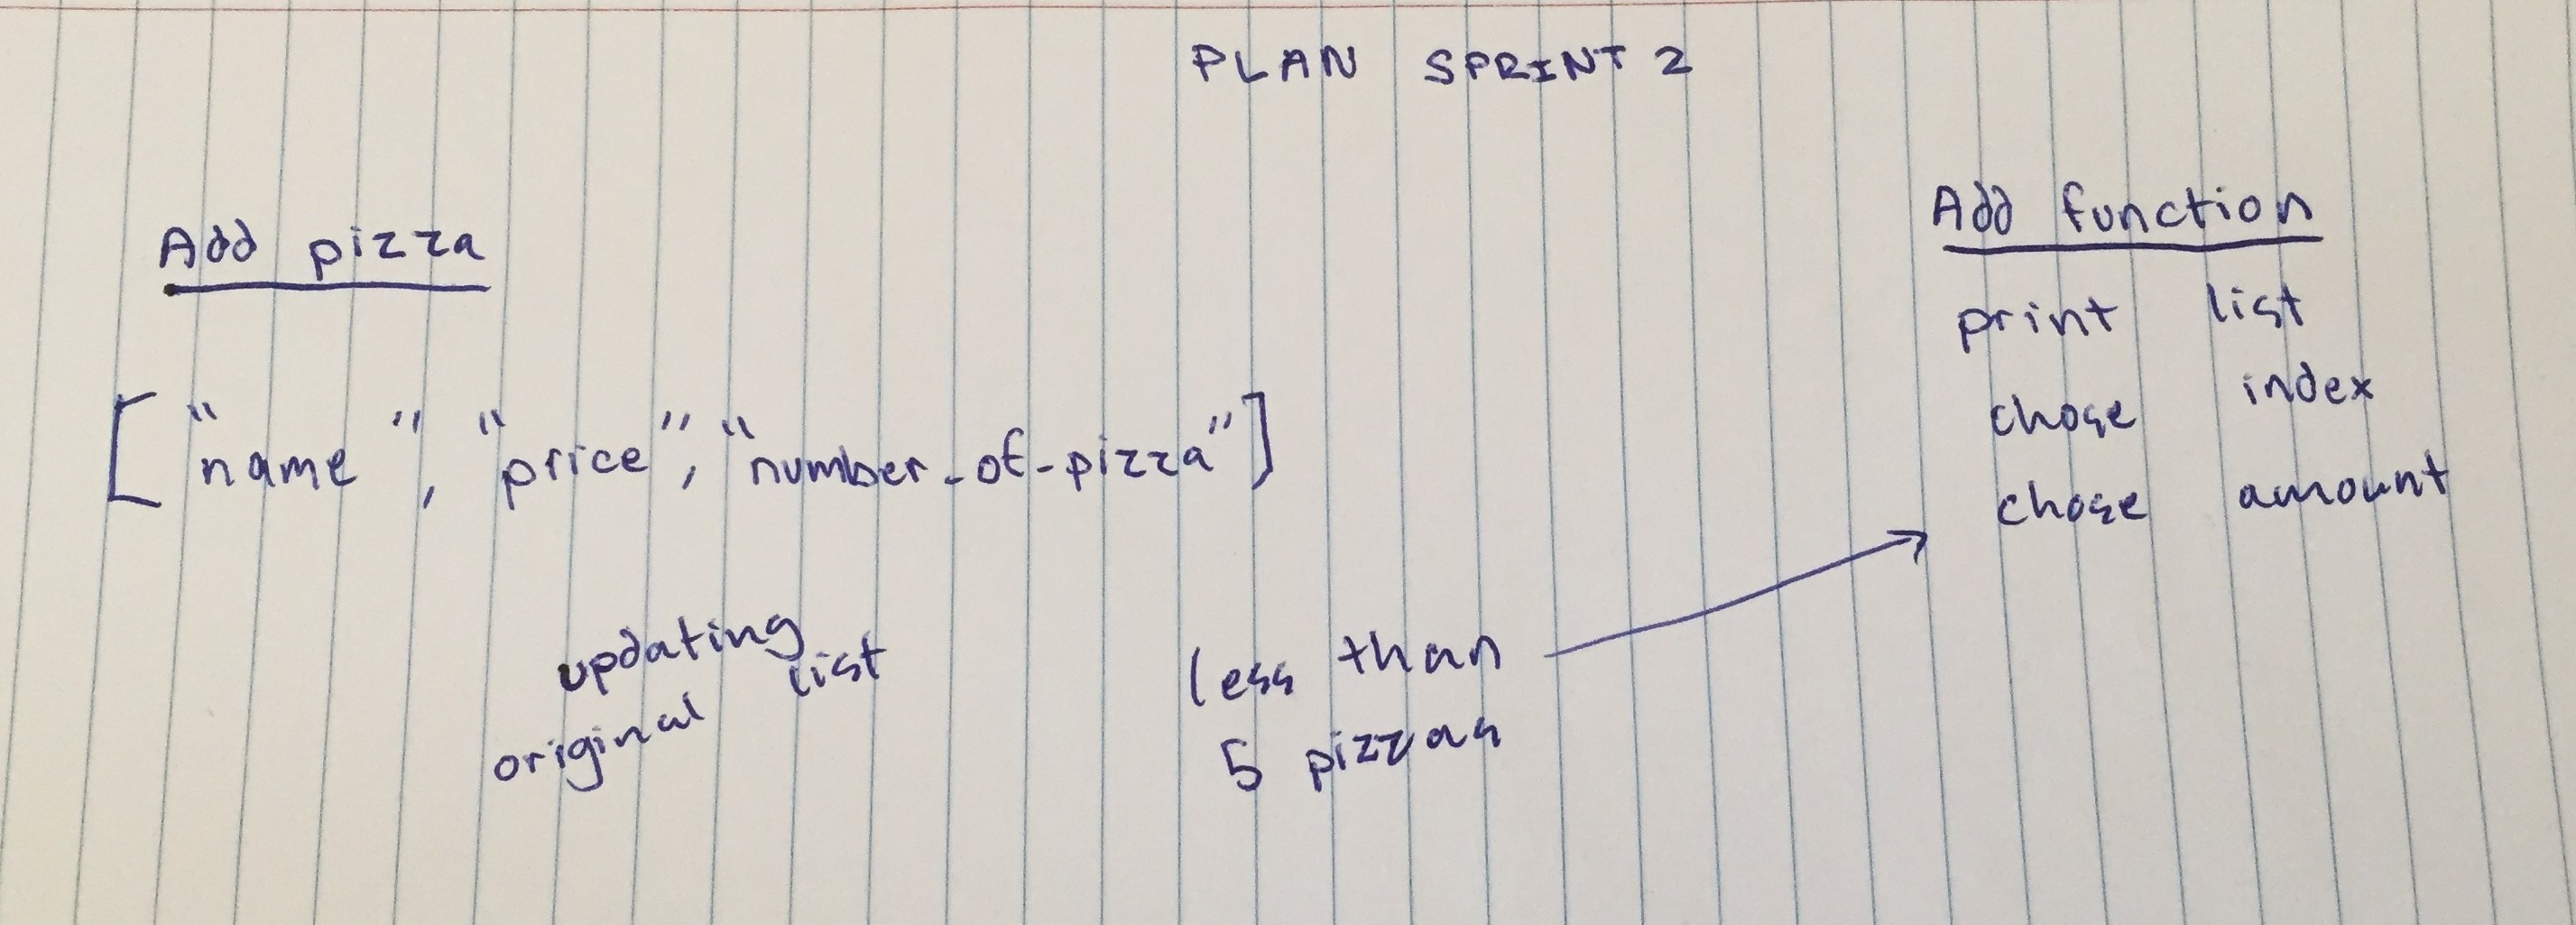 PLAN SPRINT 2
Add pizza
["name", "price", "number_of_pizza"]
updating
original list
less than
5 pizzas
Add function
print list
chose index
chose amount